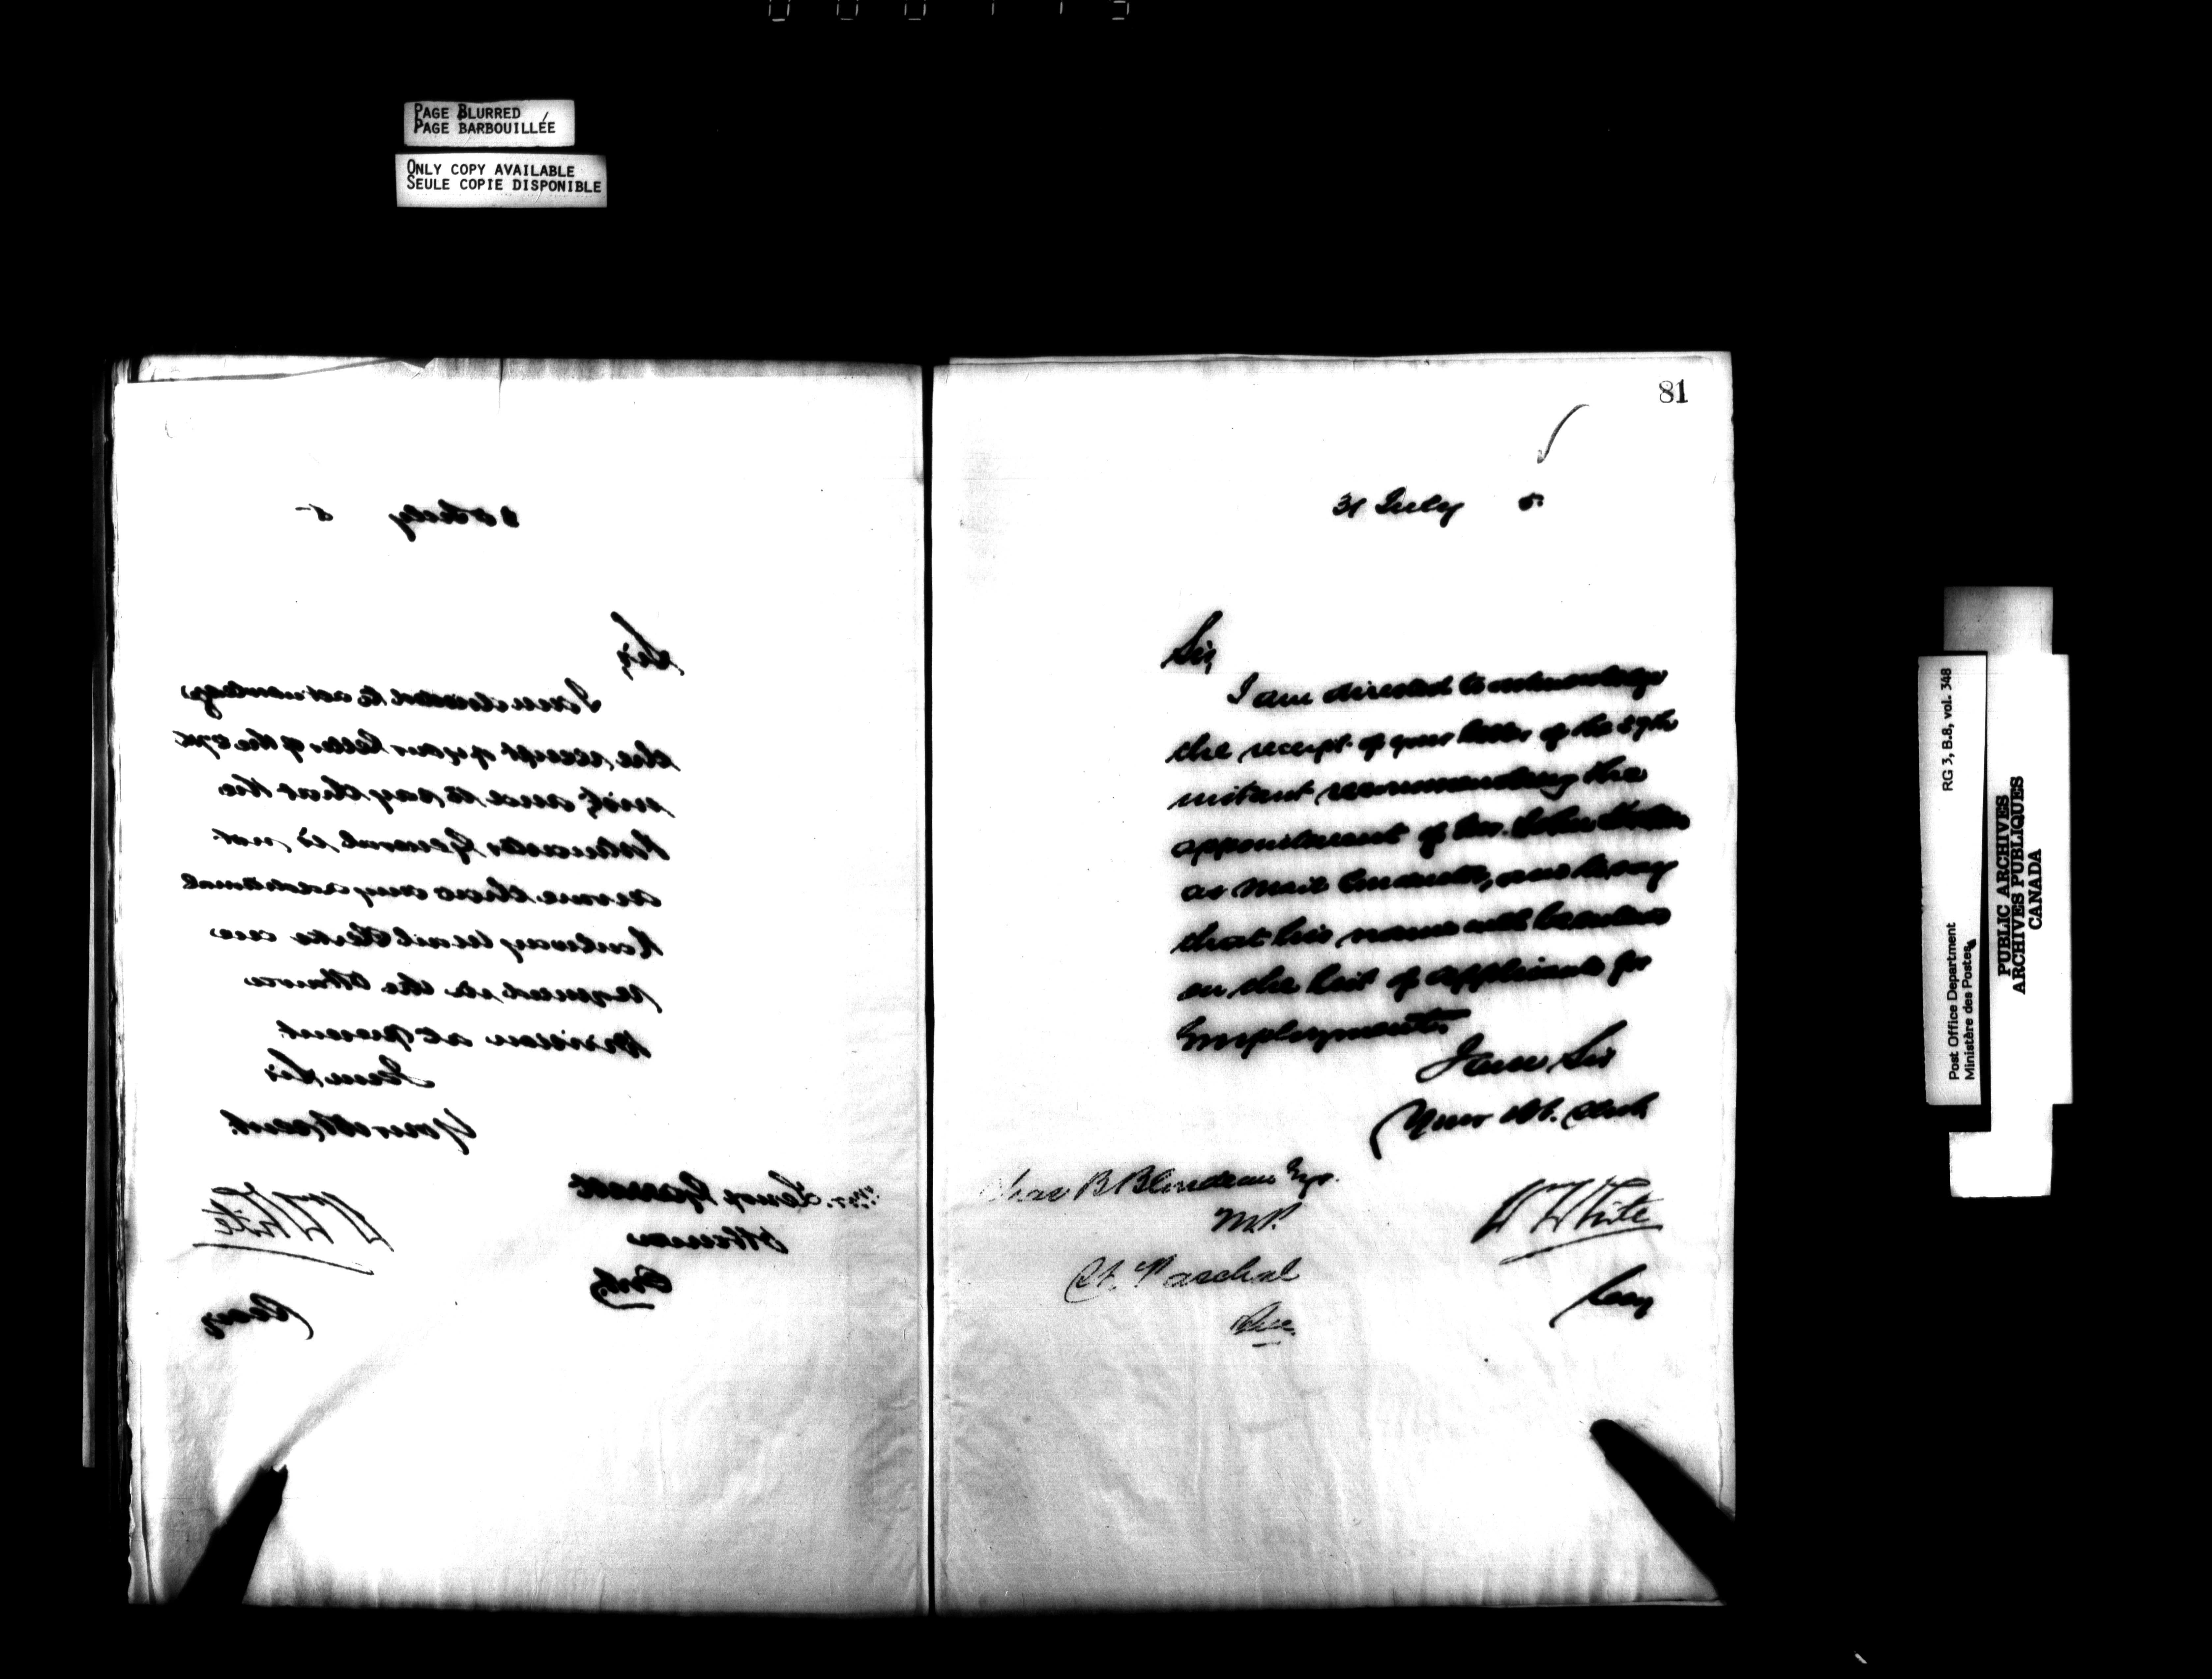 PAGE BLURRED
PAGE BARBOUILLÉE
ONLY COPY AVAILABLE
SEULE COPIE DISPONIBLE
30 July 5
Sir,
I am directed to acknowledge
the receipt of your letter of the 27th
inst, and to say that the
Postmaster General is not
aware that any additional
Railway Mail Clerks are
required in the Ottawa
Division at present
I am Sir
Your obt servt.
W White
Secy
Mr. Garrett
Ottawa
Ont.
81
31 July 5.
Sir,
I am directed to acknowledge
the receipt of your letter of the 29th
instant recommending the
appointment of Mr. John
as Mail Conductor, and to say
that his name will be entered
on the list of applicants for
Employment.
I am Sir
Your obt. servt.
W White
Secy
Chas B Blondeau Esqr.
M.P.
St. Paschal
Que.
RG 3, B.8, vol. 348
Post Office Department
Ministère des Postes
PUBLIC ARCHIVES
ARCHIVES PUBLIQUES
CANADA